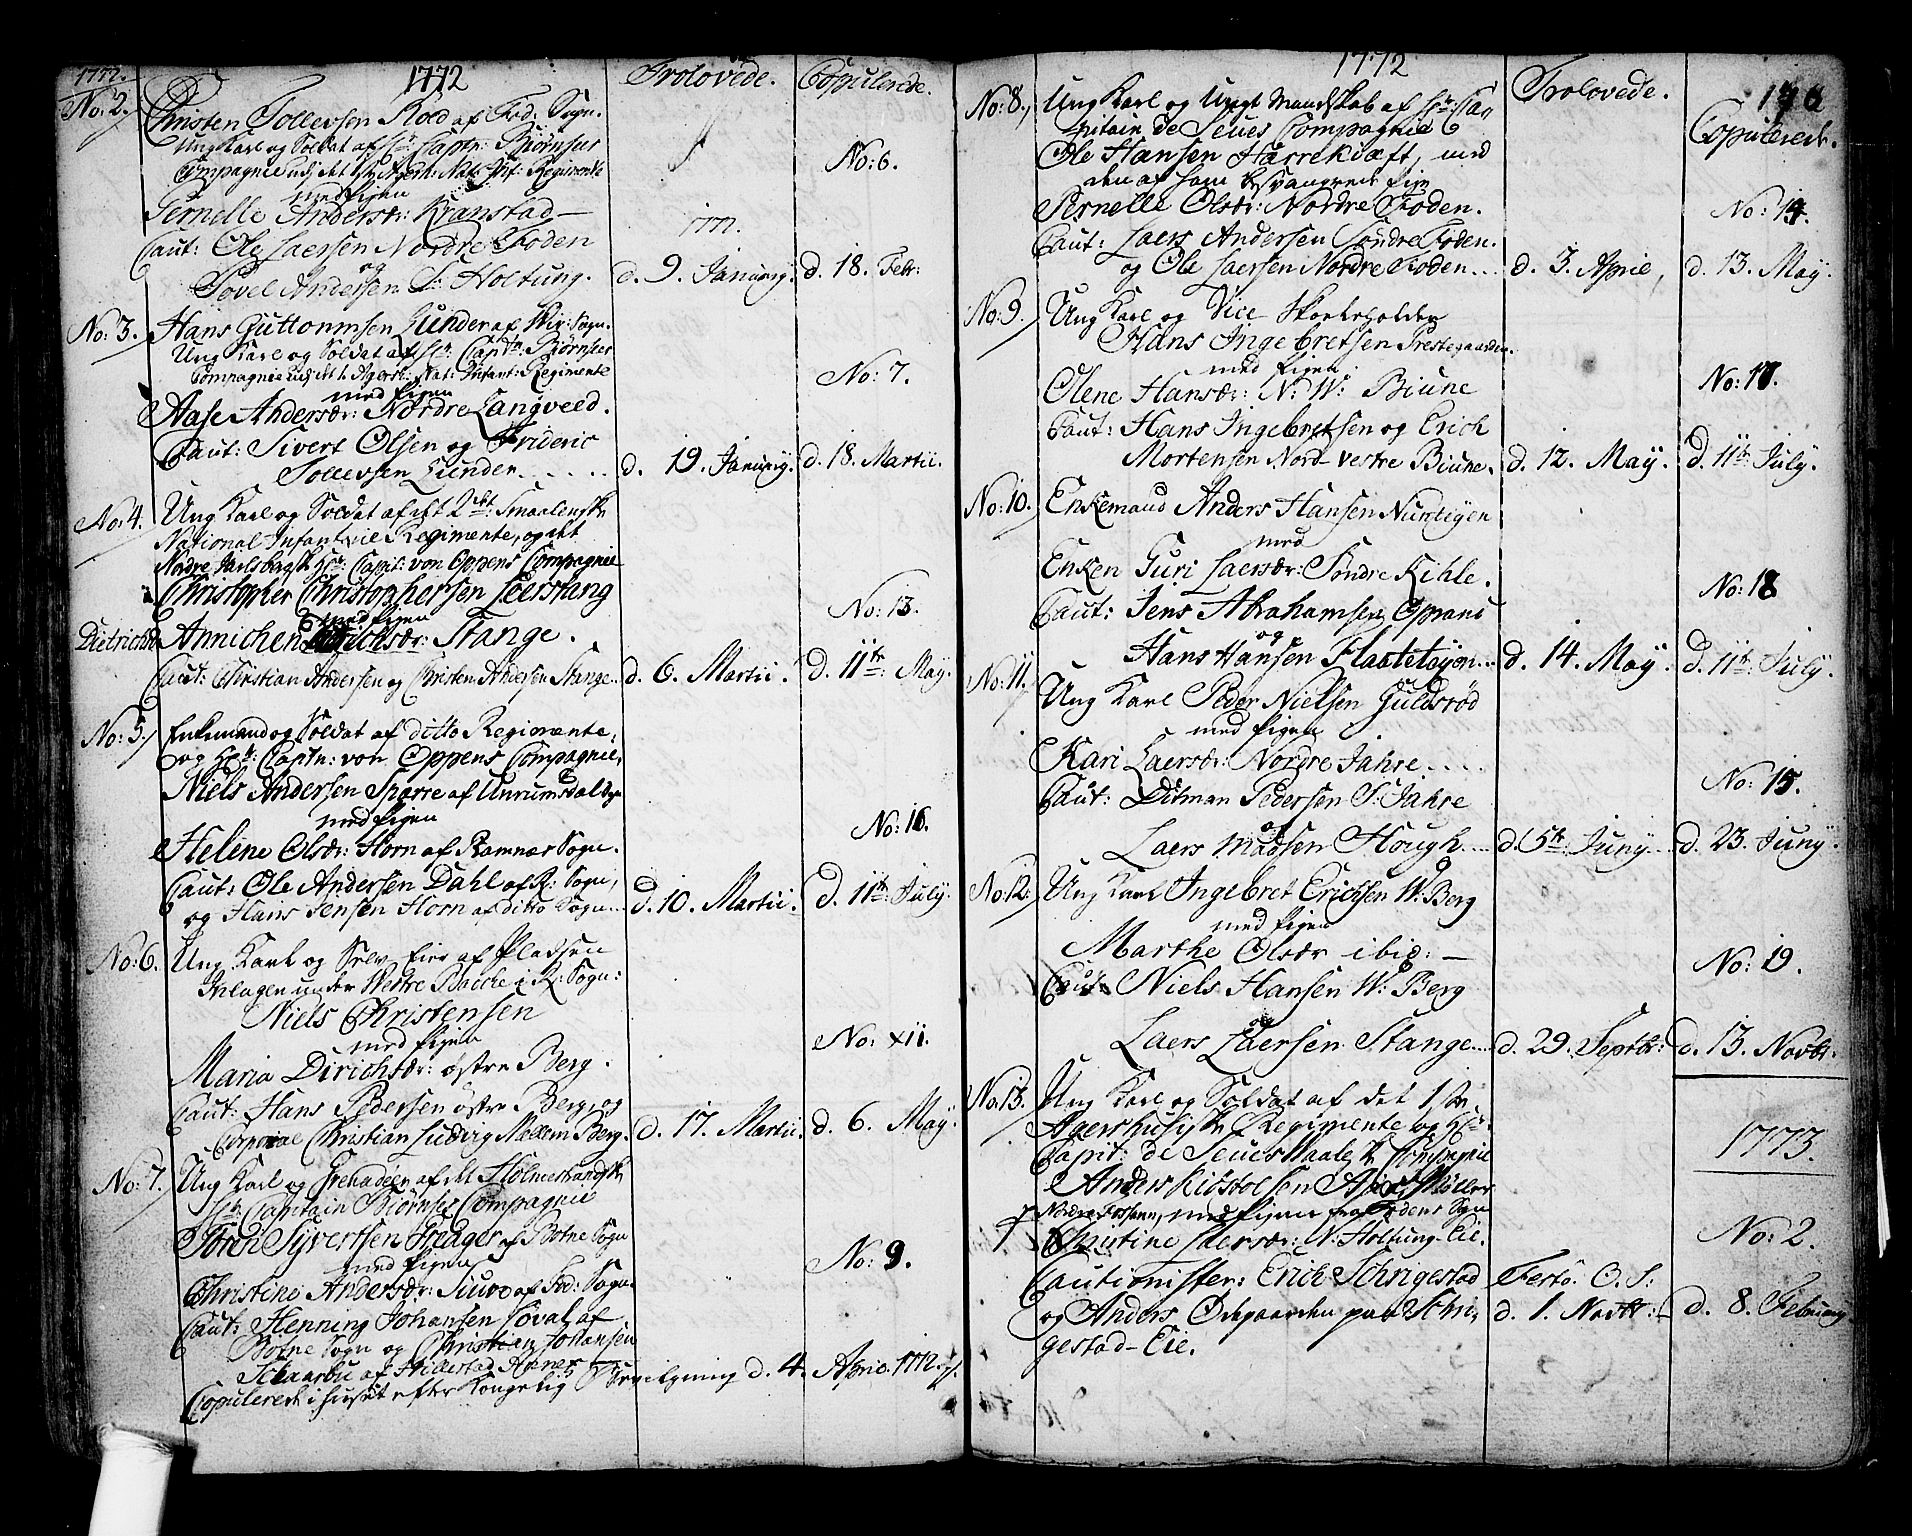 1772. 1772 Trolovede. Copulerede.
No: 2. Christen Tollevsen Kold af Fod: Sogn.
Ung Karl og Soldat af Hr: Captn: Biørnses
Compagnie ved det Agersh: Nat: Inf: Regimente No: 6.
med Pigen
Pernelle Andersdr: Kranstad —
Caut: Ole Laersen Nordre Foden 1772.
og
Povel Andersen S: Holtung. d. 9. January. d. 18. Febr:
No: 3. Hans Guttormsen Lunder af Sogn.
Ung Karl og Soldat af Hr: Captn: Biørnses
Compagnie ved det 1. Agersh: Nat: Infant: Regimente No: 7.
med Pigen
Aase Andersdr: Nordre Langveed.
Caut: Sivert Olsen og Frideric
Tollevsen Lunden..... d. 19. January. d. 18. Martii.
No: 4. Ung Karl og Soldat af det 2det: Smaalensk
National Infanterie Regimente, og det
Nordre Jarlsbergsk Hr: Capit: von Oppens Compagnie
Christopher Christophersen Leerstang No: 13.
med Pigen
Dietrichs Annichen Dirichsdr: Stange.
Caut: Christian Andersen og Christen Andersen Stange.. d. 6. Martii. d. 11te: May.
No: 5. Enkemand og Soldat af ditto Regimente,
og Hr: Captn: von Oppens Compagnie,
Niels Andersen Sparre af
med Pigen No: 16.
Helene Olsdr: Horn af Ramnes Sogn.
Caut: Ole Andersen Dahl af R: Sogn,
og Hans Jensen Horn af ditto Sogn... d. 10. Martii. d. 11te: July.
No: 6. Ung Karl og Selv Eier af Pladsen
under Westre Backe i R: Sogn:
Niels Christensen
med Pigen No: xii.
Maria Dirichsdr: østre Berg.
Caut: Hans Pedersen østre Berg, og
Corporal Christian Ludvig Mallem Berg. d. 17. Martii. d. 6. May.
No: 7. Ung Karl og Grenadeer af det Holmestrandsk
Hr: Capitain Biørnses Compagnie
Sören Syvertsen Freager af Botne Sogn
med Pigen No: 9.
Christine Andersdr: Siuve af Fod: Sogn.
Caut: Henning Johansen Løval af
Botne Sogn og Christian Johansen
af Hillestad Annex —
Copulerede i Huset efter Kongelig Bevilgning d. 4. April. 1772.
1772 Trolovede. 170
Copulerede.
No: 8. Ung Karl og Ungt Mandskab af Hr: Ca-
pitain de Seues Compagnie
Ole Hansen Harrekiæft, med
den af ham besvangrede Pige
Pernelle Olsdr: Nordre Foden. No: 14.
Caut: Laers Andersen Söndre Foden.
og Ole Laersen Nordre Foden... d. 3. April, d. 13. May.
No: 9. Ung Karl og Vice
Hans Ingebretsen Prestegaarden.
med Pigen
Olene Hansdr: N: W: Biune No: 17.
Caut: Hans Ingebretsen og Erich
Mortensen Nord-vestre Biune. d. 12. May. d. 11te: July.
No: 10. Enkemand Anders Hansen
med
Enken Guri Laersdr: Söndre Kihle. No: 18
Caut: Jens Abrahamsen
og
Hans Hansen d. 14. May. d. 11te: July.
No: 11. Ung Karl Peder Nielsen Guldsrød
med Pigen
Kari Laersdr: Nordre Jahre.... No: 15.
Caut: Ditman Pedersen S: Jahre
og
Laers Madsen Hough.... d. 5te: Juny. d. 23. Juny.
No: 12. Ung Karl Ingebret Erichsen W: Berg
med Pigen
Marthe Olsdr ibid: — No: 19.
Caut: Niels Hansen W: Berg
og
Laers Laersen Stange.... d. 29. Septbr: d. 13. Novbr.
No: 13. Ung Karl og Soldat af det 1ste
Agershusiske Regimente og Hr: 1773.
Capit: de Seues Compagnie
Anders Kiöstolsen
med Pigen Sogn No: 2.
Christine Laersdr: N: Holtung-Eie.
Cautionister: Erich Schrigestad Festo. O. S:
og Anders Ödegaarden paa Schri- d. 1. Novbr: d. 8. February
gestad-Eie.